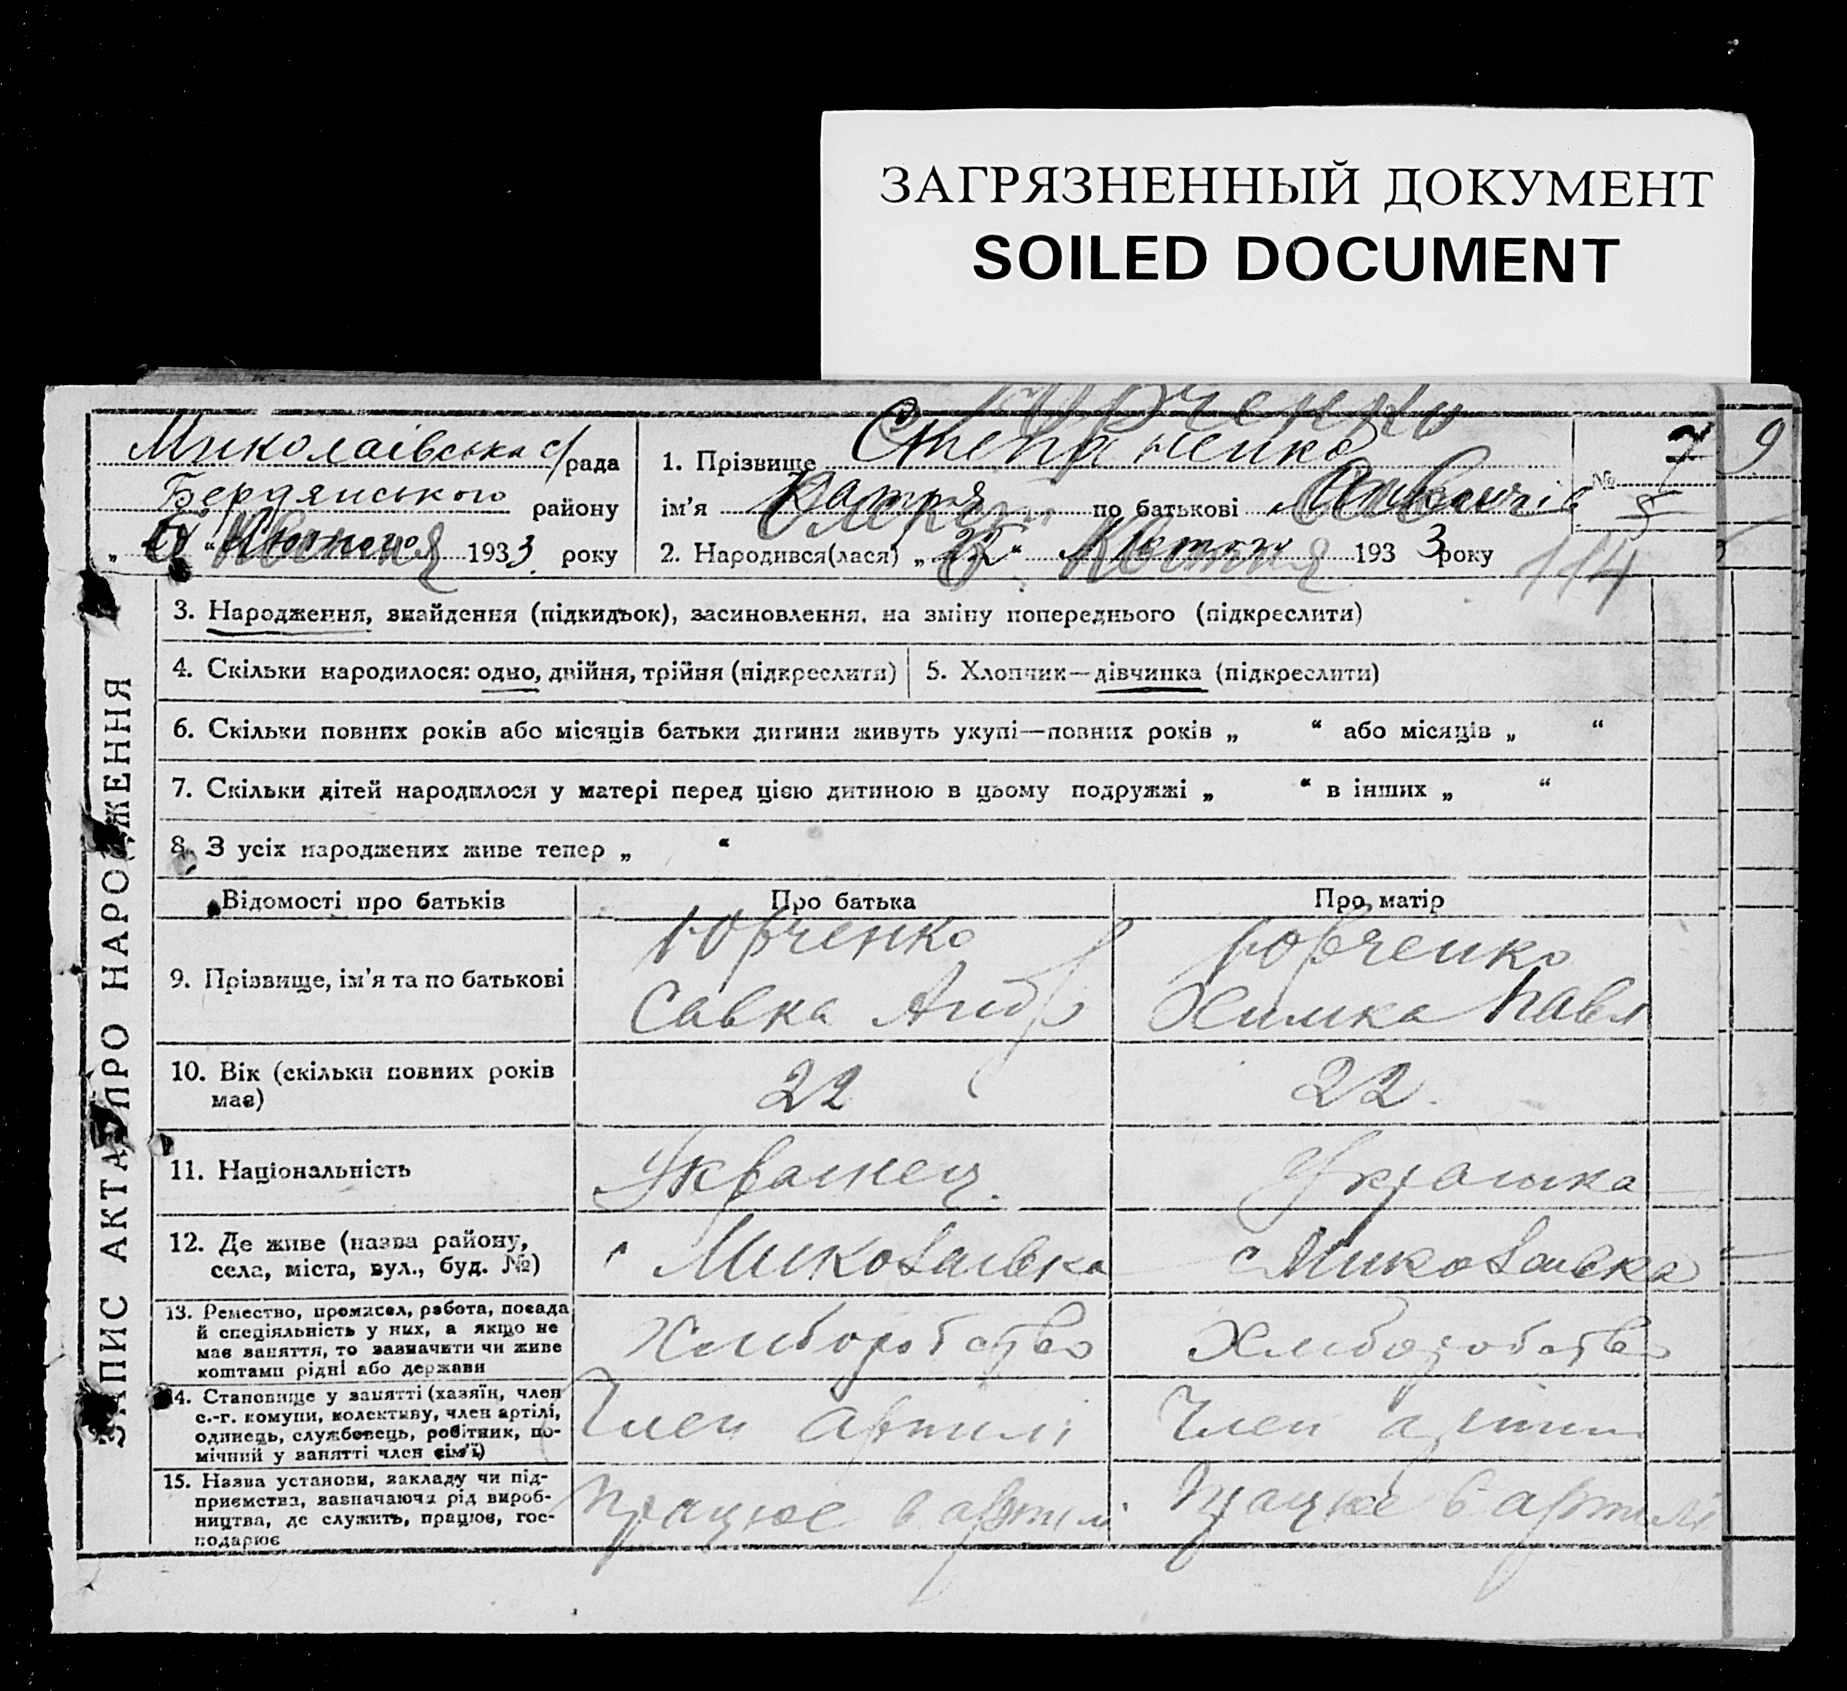 ЗАГРЯЗНЕННЫЙ ДОКУМЕНТ
SOILED DOCUMENT
Юрченко
Миколаівська с/рада
1. Прізвище Степаненко
№ 7
9
Бердянського району
ім'я по батькові
„ “ 1933 року
2. Народився(лася) „ “ 1933 року
114
ЗАПИС АКТА ПРО НАРОДЖЕННЯ
3. Народження, знайдення (підкидьок), засиновлення, на зміну попереднього (підкреслити)
4. Скільки народилося: одно, двійня, трійня (підкреслити)
5. Хлопчик—дівчинка (підкреслити)
6. Скільки повних років або місяців батьки дитини живуть укупі—повних років „ “ або місяців „ “
7. Скільки дітей народилося у матері перед цією дитиною в цьому подружжі „ “ в інших „ “
8. З усіх народжених живе тепер „ “
Відомості про батьків
Про батька
Про матір
9. Прізвище, ім'я та по батькові
Юрченко
Савка Андр
Юрченко
Химка Павл
10. Вік (скільки повних років
має)
22
22.
11. Національність
Украинец.
Украинка
12. Де живе (назва району,
села, міста, вул., буд. №)
с Миколаивка
с Миколаивка
13. Ремество, промисел, работа, посада
й спеціяльність у них, а якщо не
має заняття, то зазначити чи живе
коштами рідні або держави
Хлиборобство
Хлиборобство
14. Становище у занятті (хазяїн, член
с.-г. комуни, колективу, член артілі,
одинець, службовець, робітник, по-
мічний у занятті член сім'ї)
Член артилі
Член артили
15. Назва установи, закладу чи під-
приємства, зазначаючи рід вироб-
ництва, де служить, працює, гос-
подарює
Працює в артилі
Працює в артилі